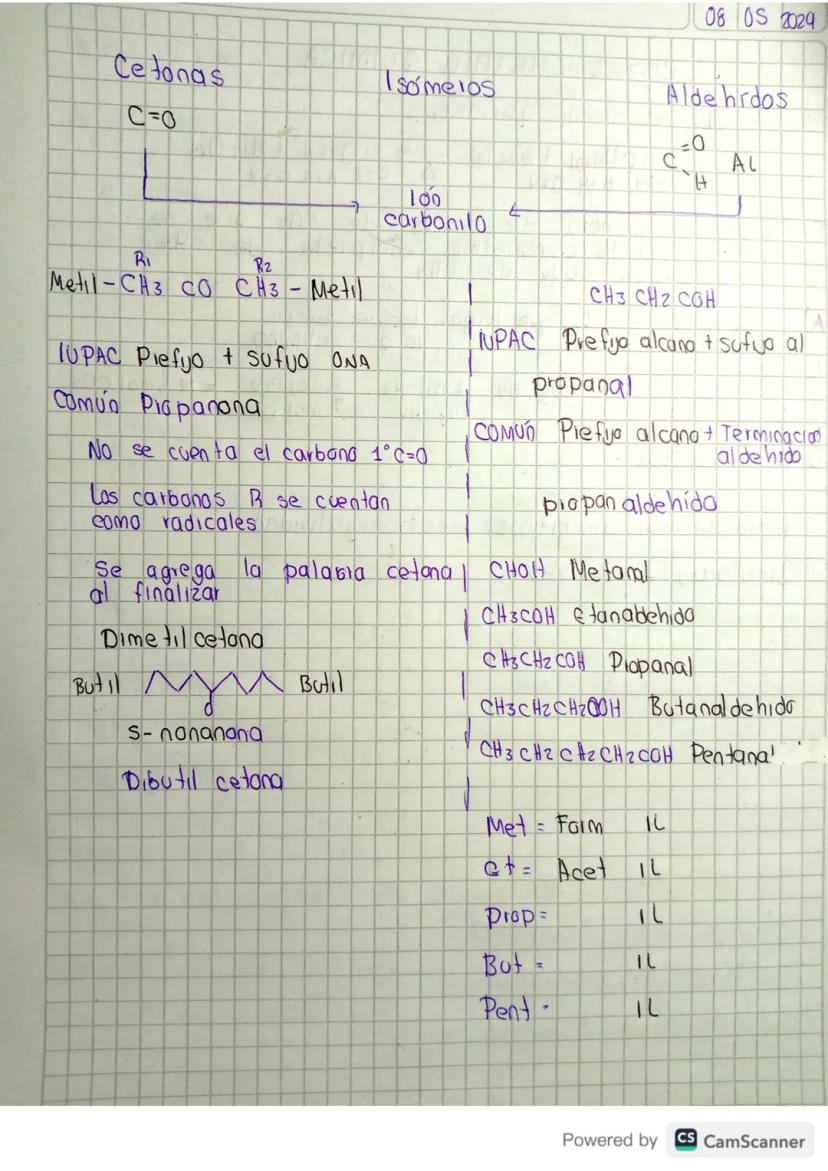 08 05 2024
Cetonas Isómeros Aldehidos
C=O
C =O H AL
Ión
carbonilo
R1 R2
Metil - CH3 CO CH3 - Metil
IUPAC Prefijo + sufijo ONA
Común Propanona
No se cuenta el carbono 1° C=O
Los carbonos R se cuentan
como radicales
Se agrega la palabra cetona
al finalizar
Dimetil cetona
Butil Butil
O
5-nonanona
Dibutil cetona
CH3 CH2 COH
IUPAC Prefijo alcano + sufijo al
propanal
COMÚN Prefijo alcano + Terminación
aldehido
propan aldehído
CHOH Metanal
CH3COH Etanaldehido
CH3CH2COH Propanal
CH3CH2CH2COH Butanaldehido
CH3 CH2 CH2 CH2COH Pentanal
Met = Form IL
Et = Acet IL
Prop = IL
But = IL
Pent - IL
Powered by CS CamScanner